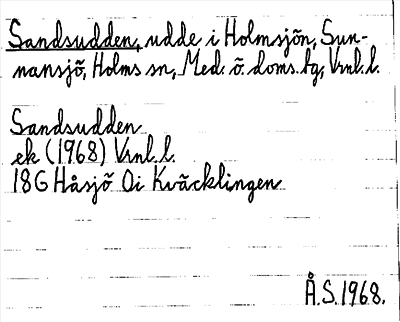 Sandsudden, udde i Holmsjön, Sun-
nansjö, Holms sn, Med. ö. doms.bg, Vnl. l.
Sandsudden
ek (1968) Vnl. l.
18G Håsjö 0i Kväcklingen
Å.S.1968.